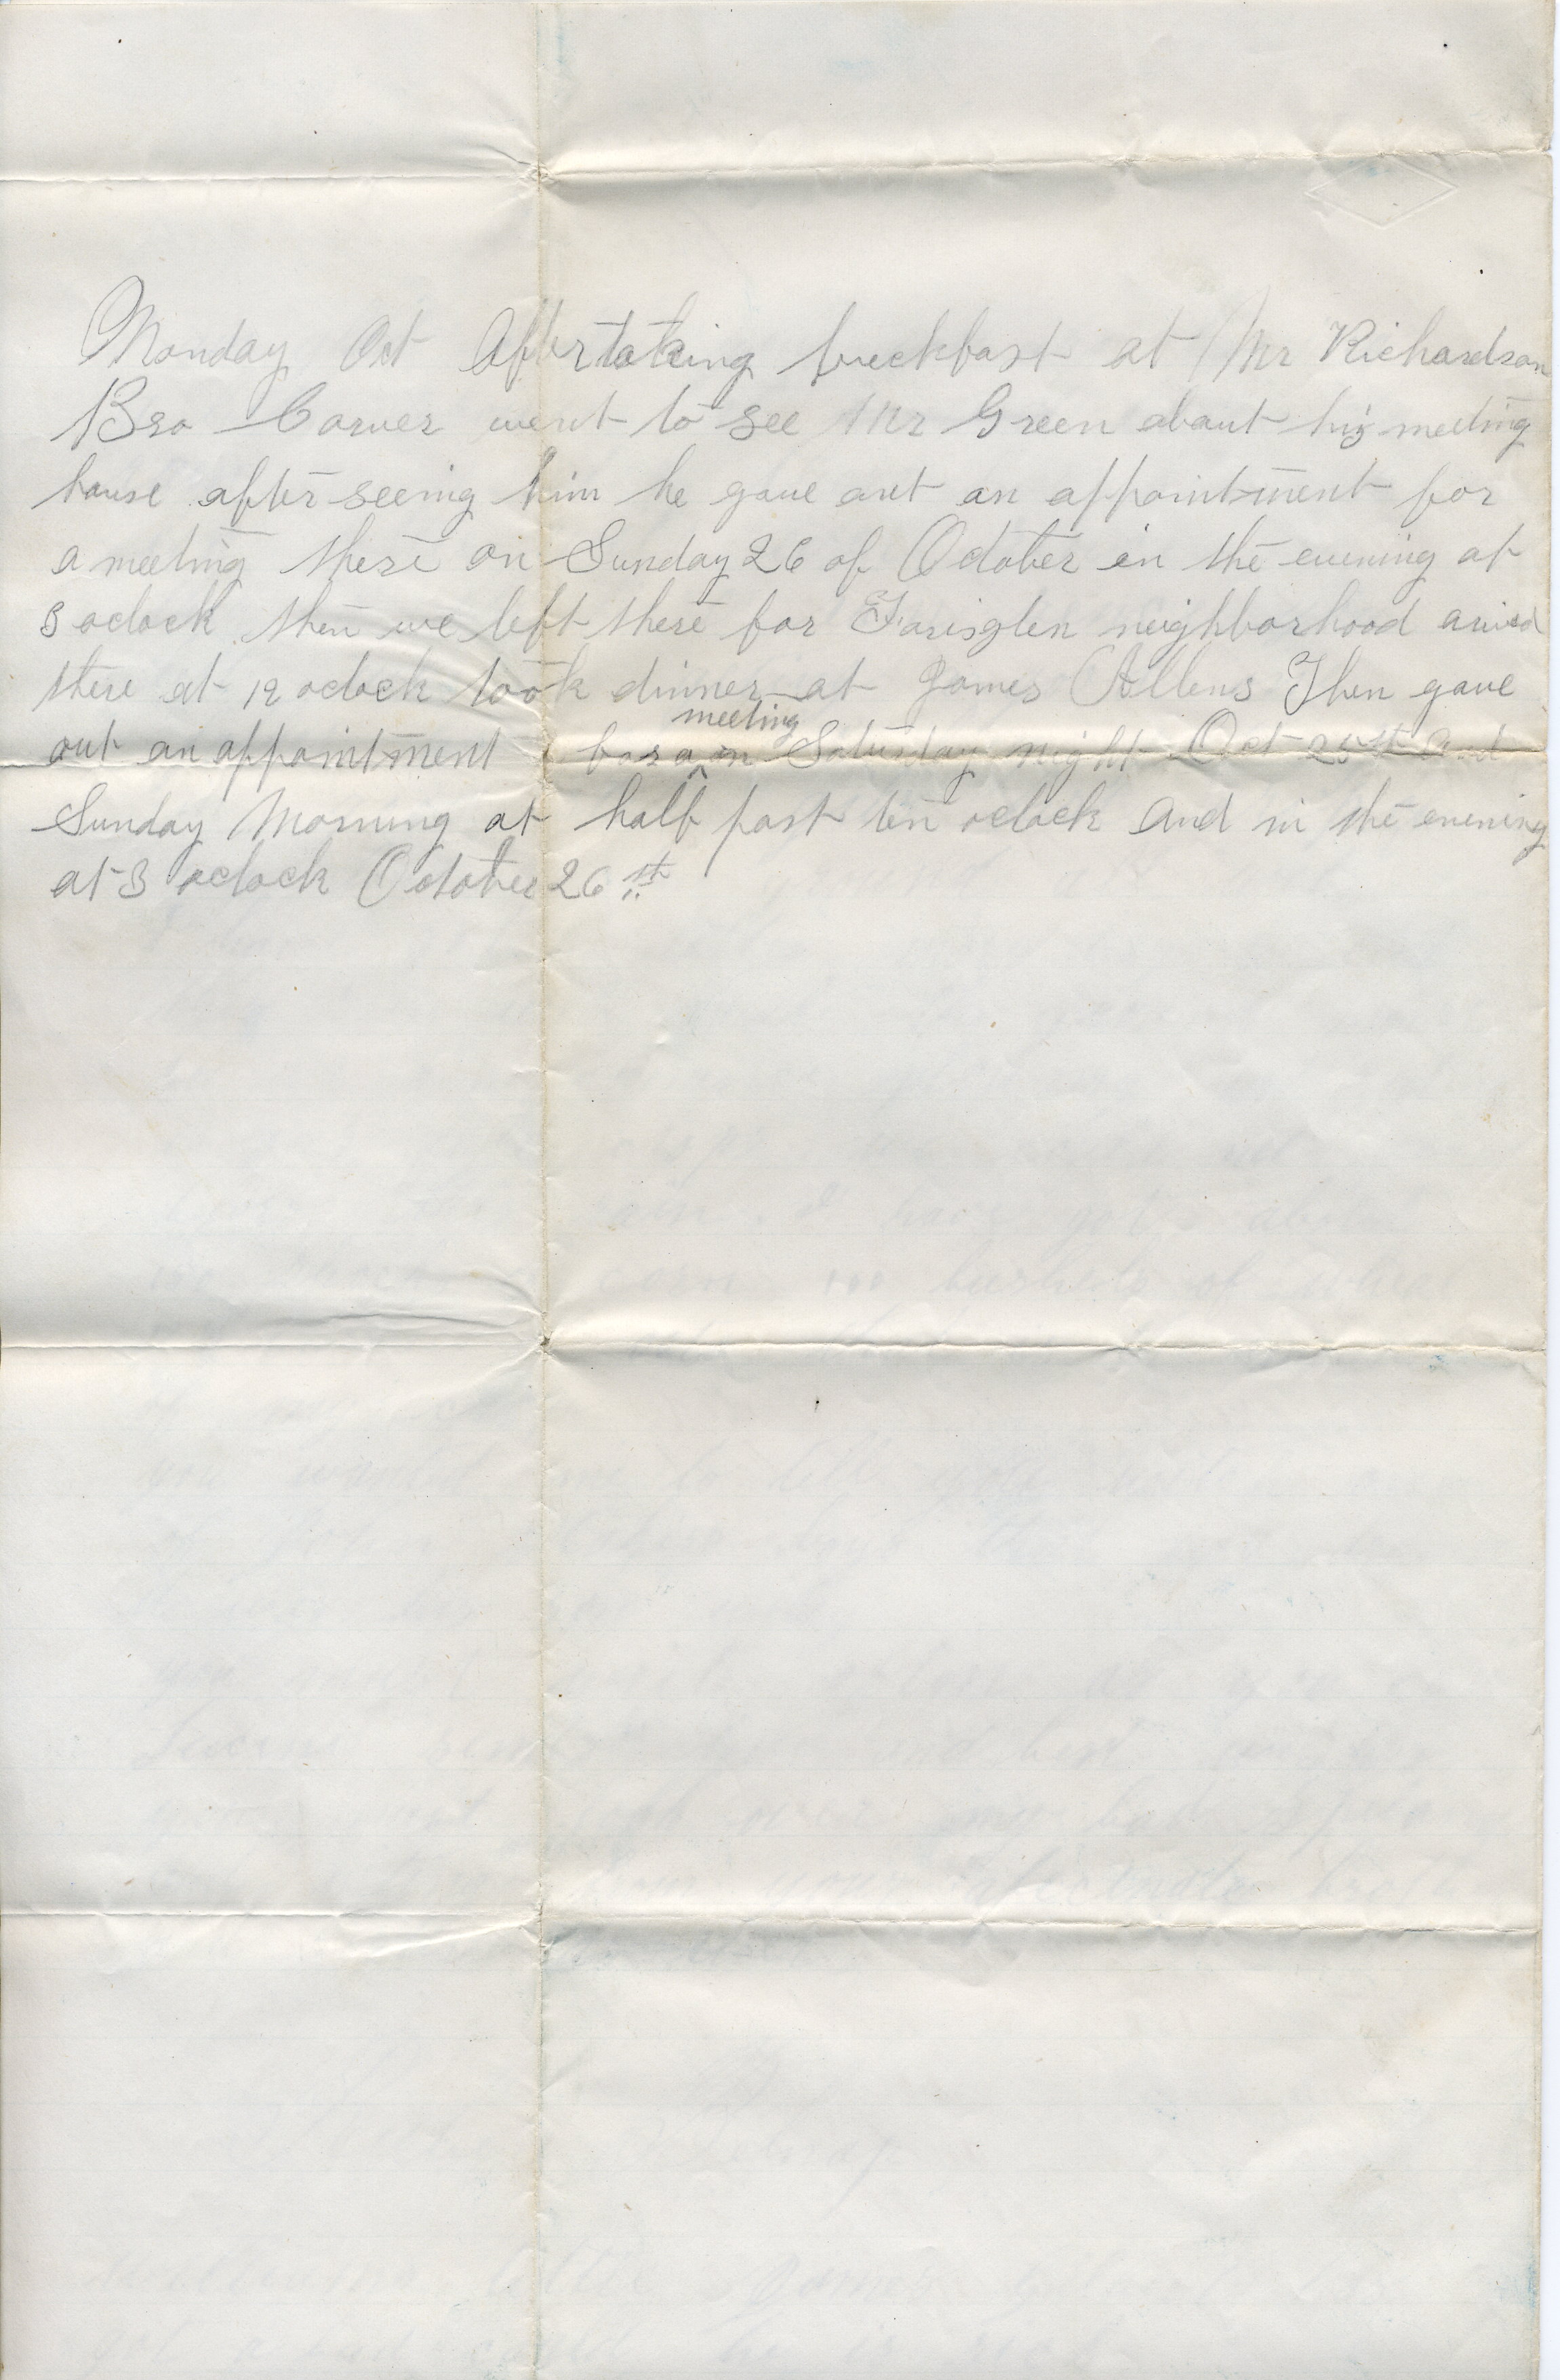 Monday Oct After taking breckfast at Mr Richardson
Bro Carver went to see Mr Green about his meeting
house after seeing him he gave out an appointment for
a meeting there on Sunday 26 of October in the evening at
3 oclock then we left there for neighborhood arived
there at 12 oclock took dinner at James Allens Then gave
meeting
out an appointment for a on Saturday night Oct 25st and
Sunday Morning at half past ten oclock and in the evening
at 3 oclock October 26st